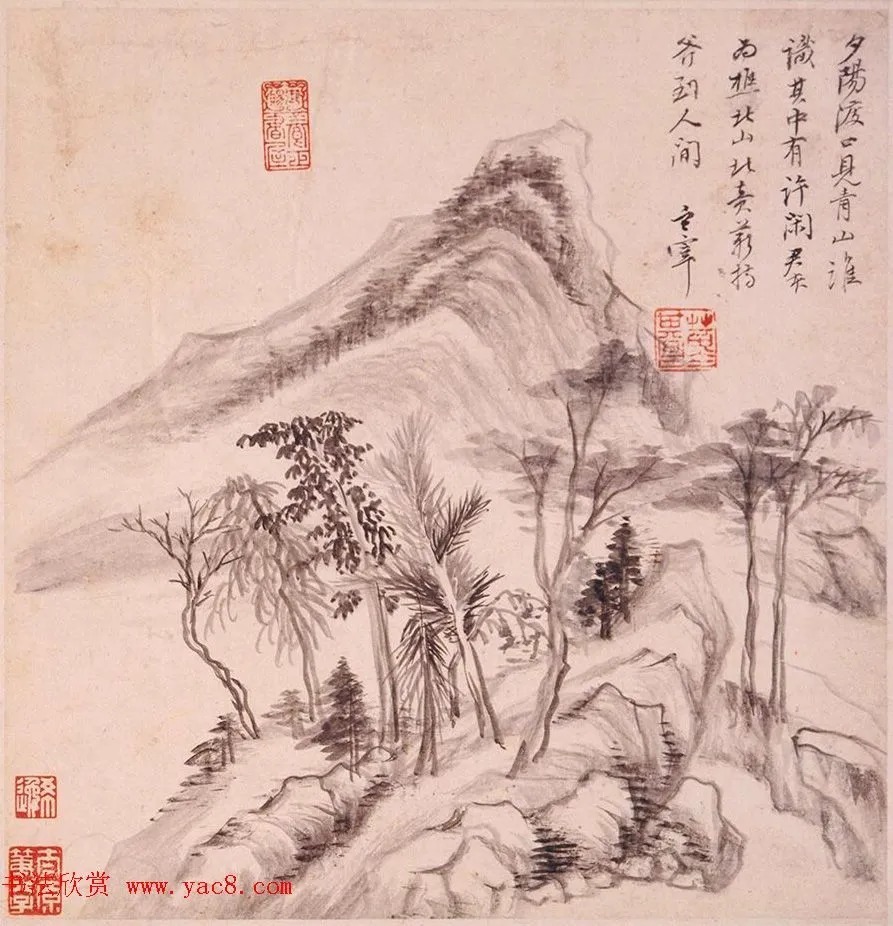 夕陽渡口見青山誰
識其中有許閑君
為樵北山北賣薪持
斧到人间 玄宰
书法欣赏 www.yac8.com